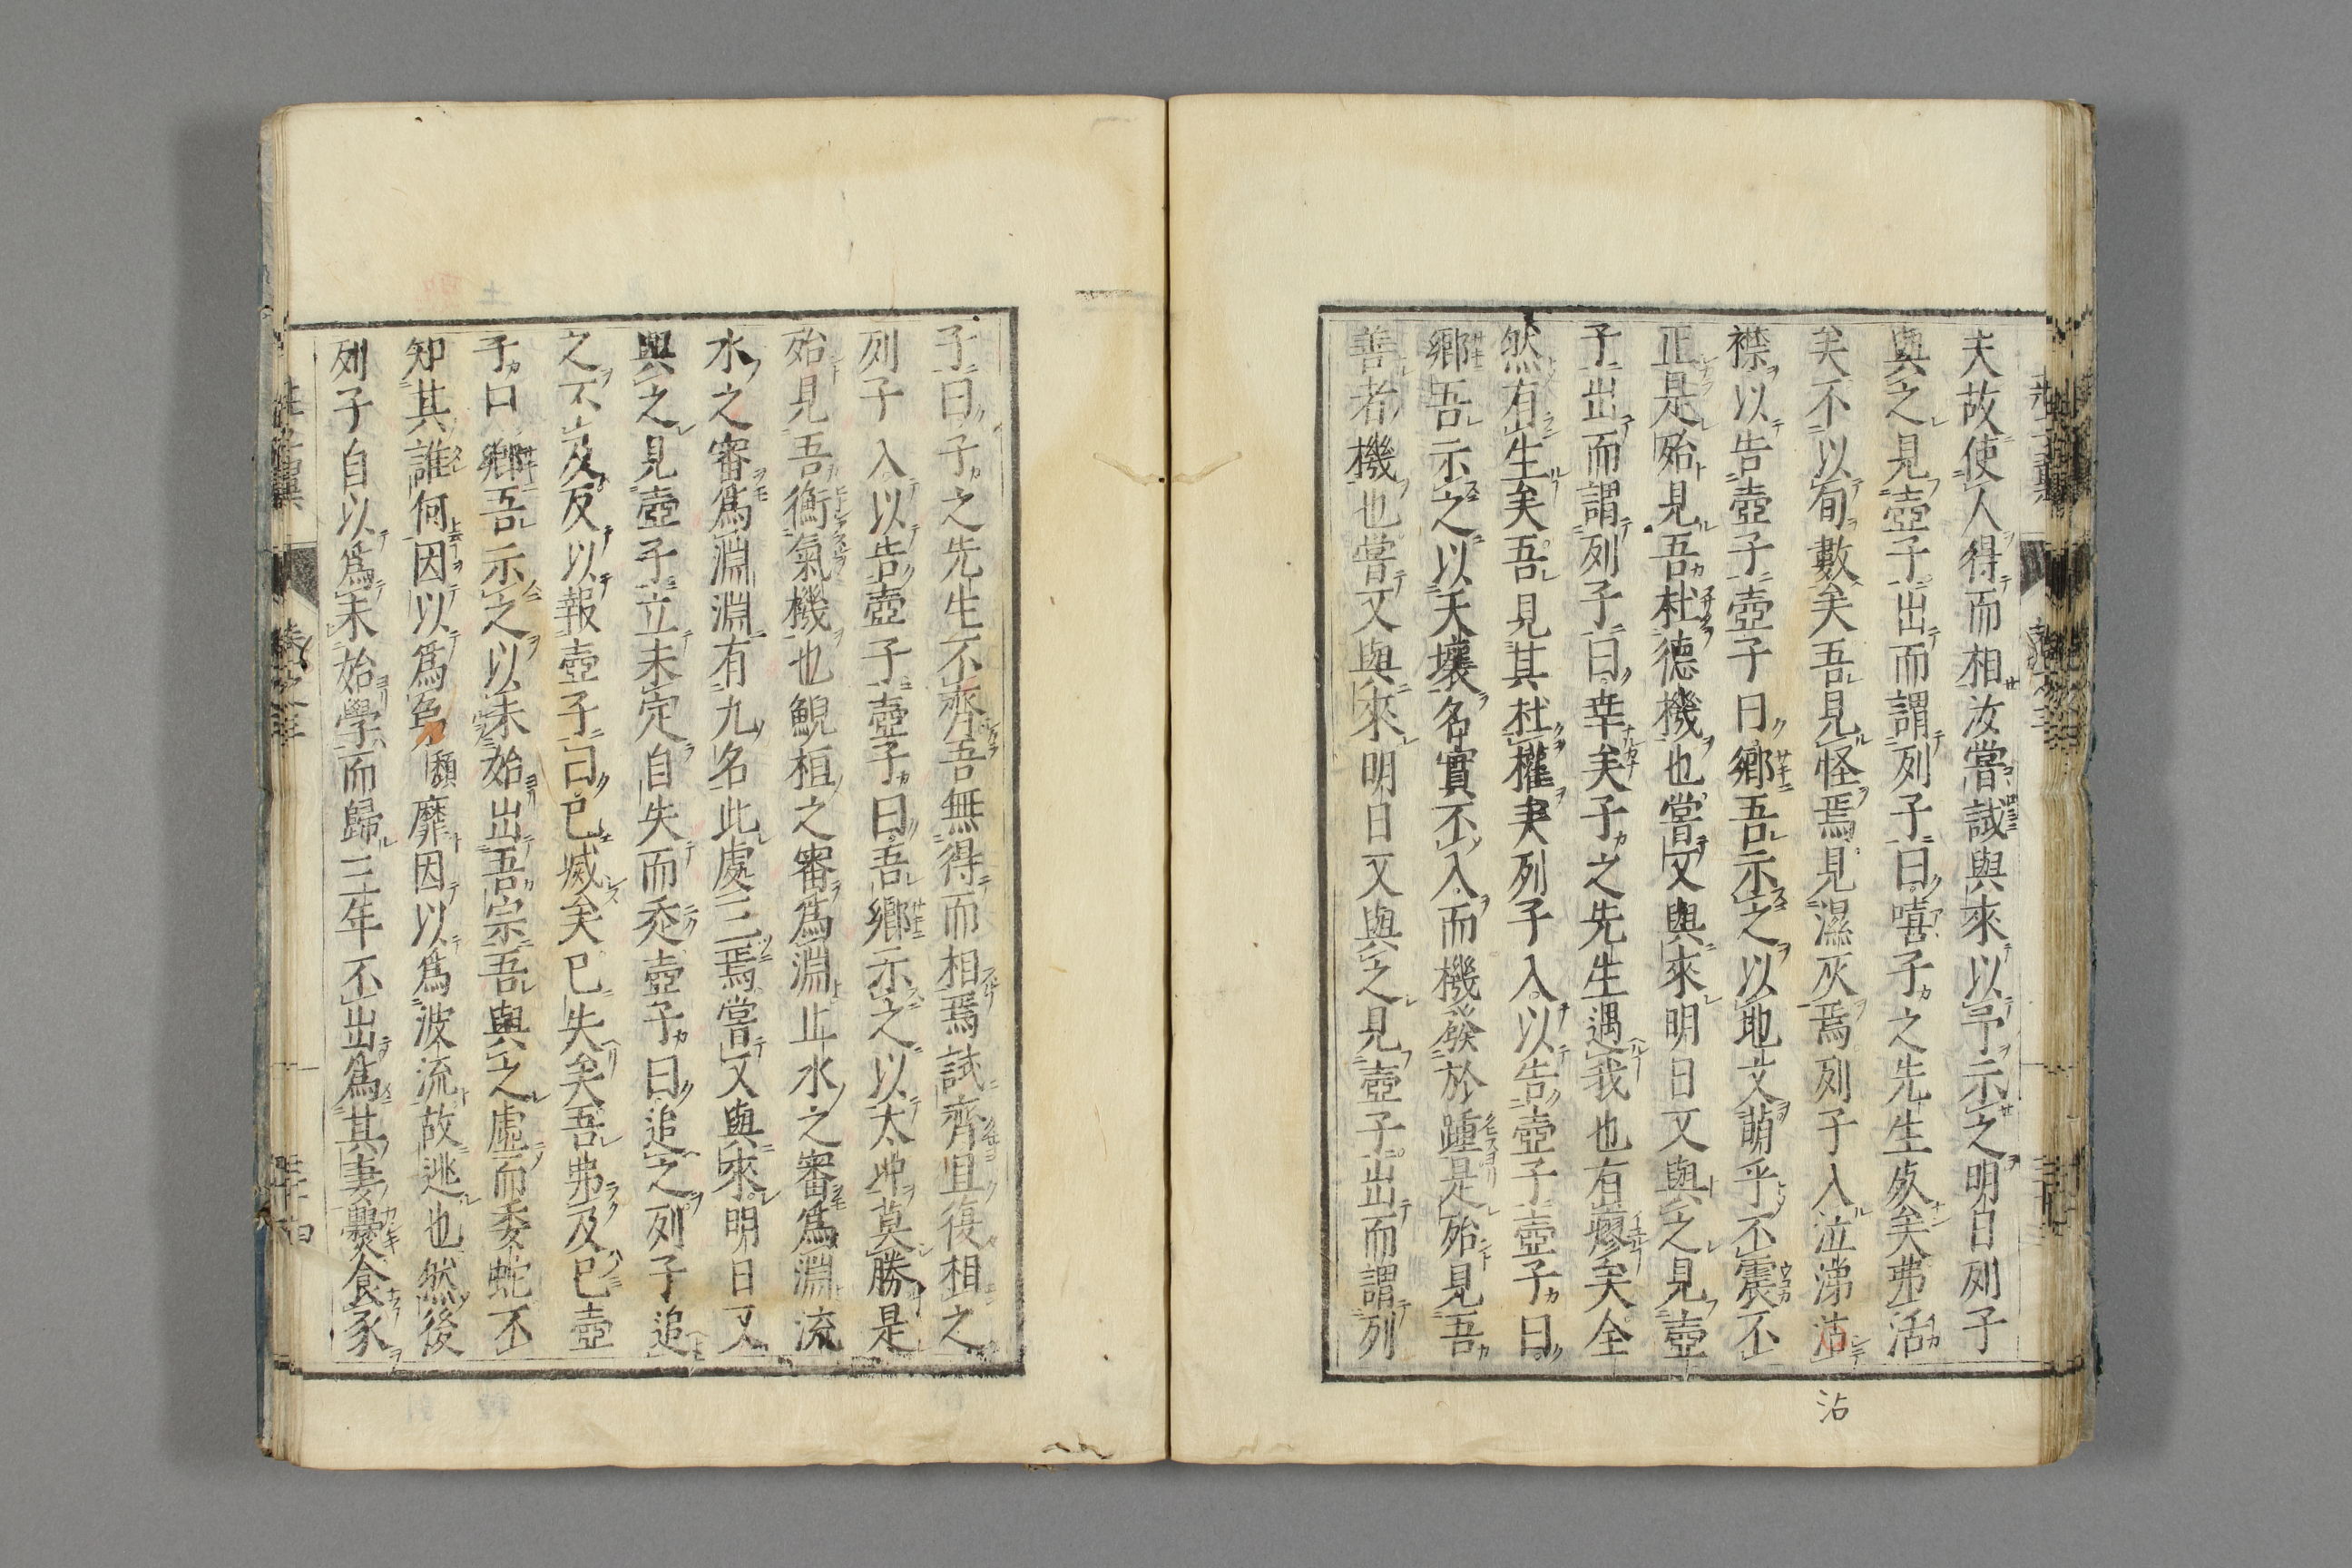 夫故使人得而相汝嘗試與來以予示之明日列子
與之見壺子出而謂列子曰嘻子之先生死矣弗活
矣不以旬數矣吾見怪焉見濕灰焉列子入泣涕沾
襟以告壺子壺子曰鄉吾示之以地文萌乎不震不
正是殆見吾杜德機也嘗又與來明日又與之見壺
子出而謂列子曰幸矣子之先生遇我也有瘳矣全
然有生矣吾見其杜權矣列子入以告壺子壺子曰
鄉吾示之以天壤名實不入而機發於踵是殆見吾
善者機也嘗又與來明日又與之見壺子出而謂列
沾
子曰子之先生不齊吾無得而相焉試齊且復相之
列子入以告壺子壺子曰吾鄉示之以太冲莫勝是
殆見吾衡氣機也鯢桓之審爲淵止水之審爲淵流
水之審爲淵淵有九名此處三焉嘗又與來明日又
與之見壺子立未定自失而走壺子曰追之列子追
之不及反以報壺子曰已滅矣已失矣吾弗及已壺
子曰鄉吾示之以未始出吾宗吾與之虛而委蛇不
知其誰何因以爲頹靡因以爲波流故逃也然後
列子自以爲未始學而歸三年不出爲其妻爨食豕